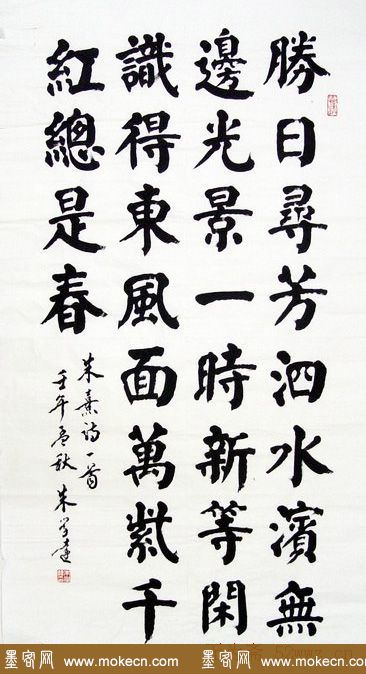 勝日尋芳泗水濱無
邊光景一時新等閑
識得東風面萬紫千
紅總是春
朱熹诗一首
壬午孟秋 朱
墨客网 www.mokecn.com 墨客网 www.mokecn.com